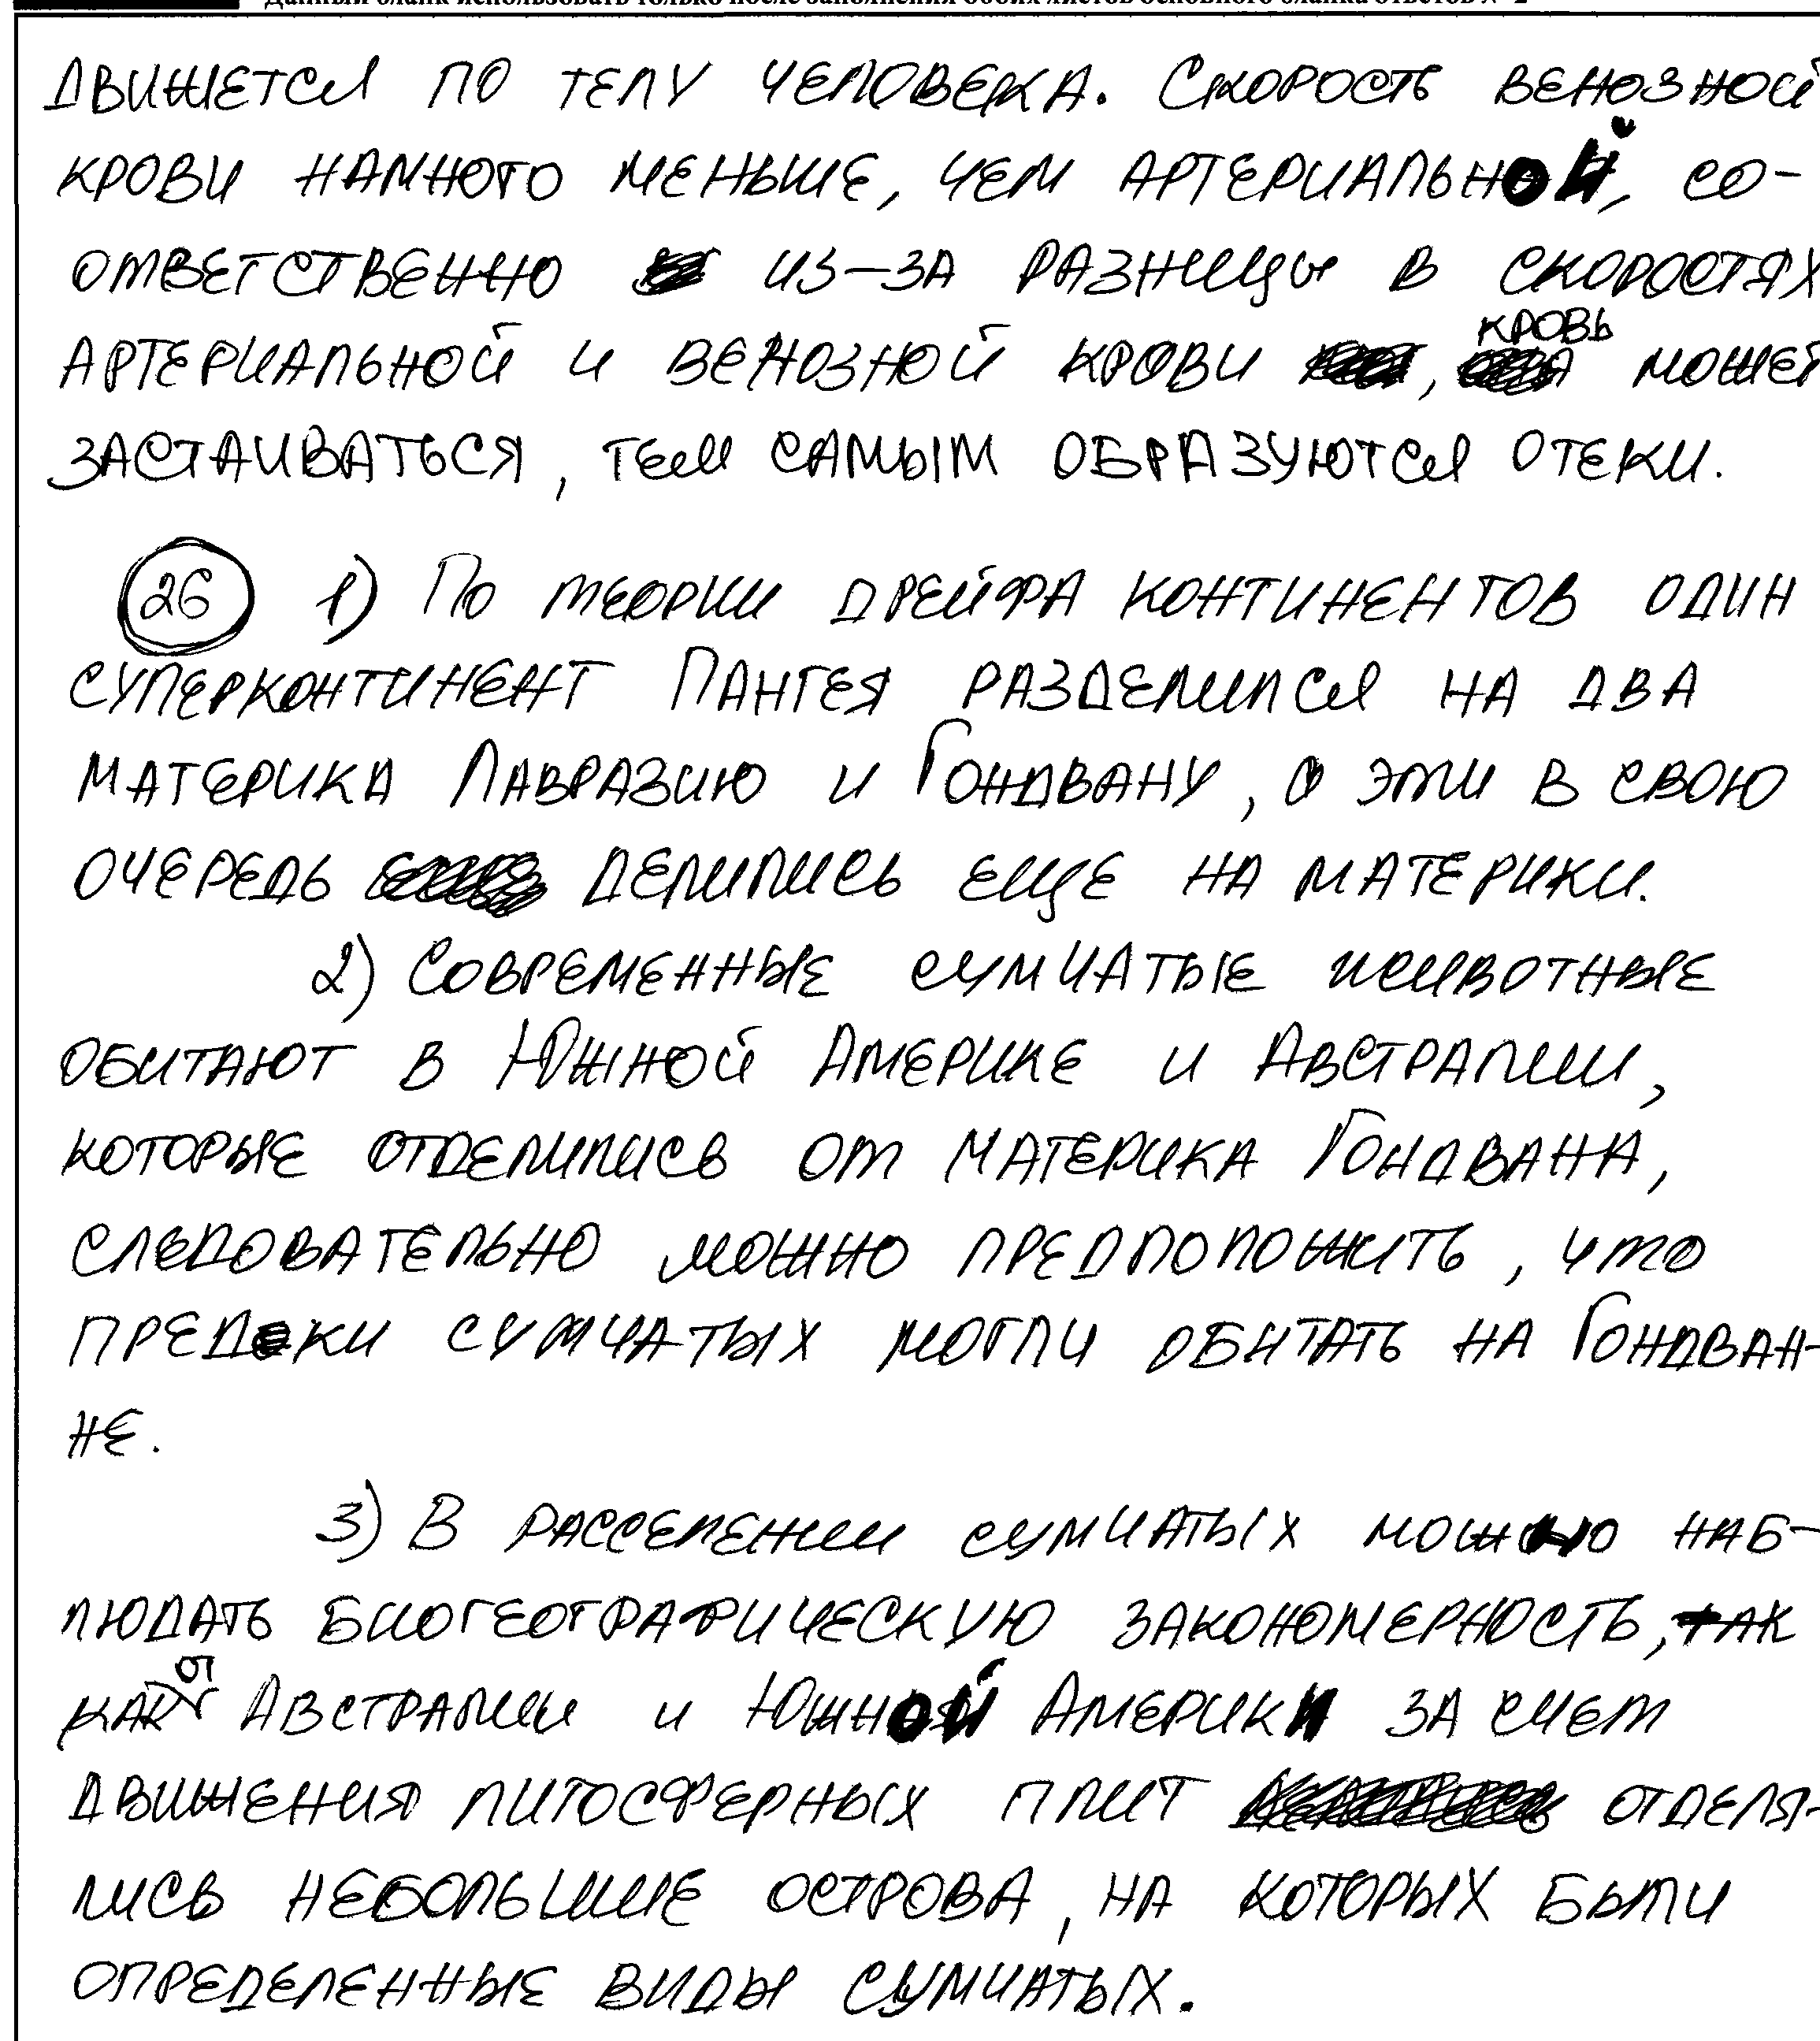 Данный бланк использовать только после заполнения обоих листов основного бланка ответов № 2
движется по телу человека. Скорость венозной
крови намного меньше, чем артериальной, со-
ответственно из-за разницы в скоростях
артериальной и венозной крови, кровь может
застаиваться, тем самым образуются отеки.
26 1) По теории дрейфа континентов один
суперконтинент Пангея разделился на два
материка Лавразию и Гондвану, а эти в свою
очередь делились еще на материки.
2) Современные сумчатые животные
обитают в Южной Америке и Австралии,
которые отделились от материка Гондвана,
следовательно можно предположить, что
предки сумчатых могли обитать на Гондван-
не.
3) В расселении сумчатых можно наб-
людать биогеографическую закономерность, так
как от Австралии и Южной Америки за счет
движения литосферных плит отделя-
лись небольшие острова, на которых были
определенные виды сумчатых.